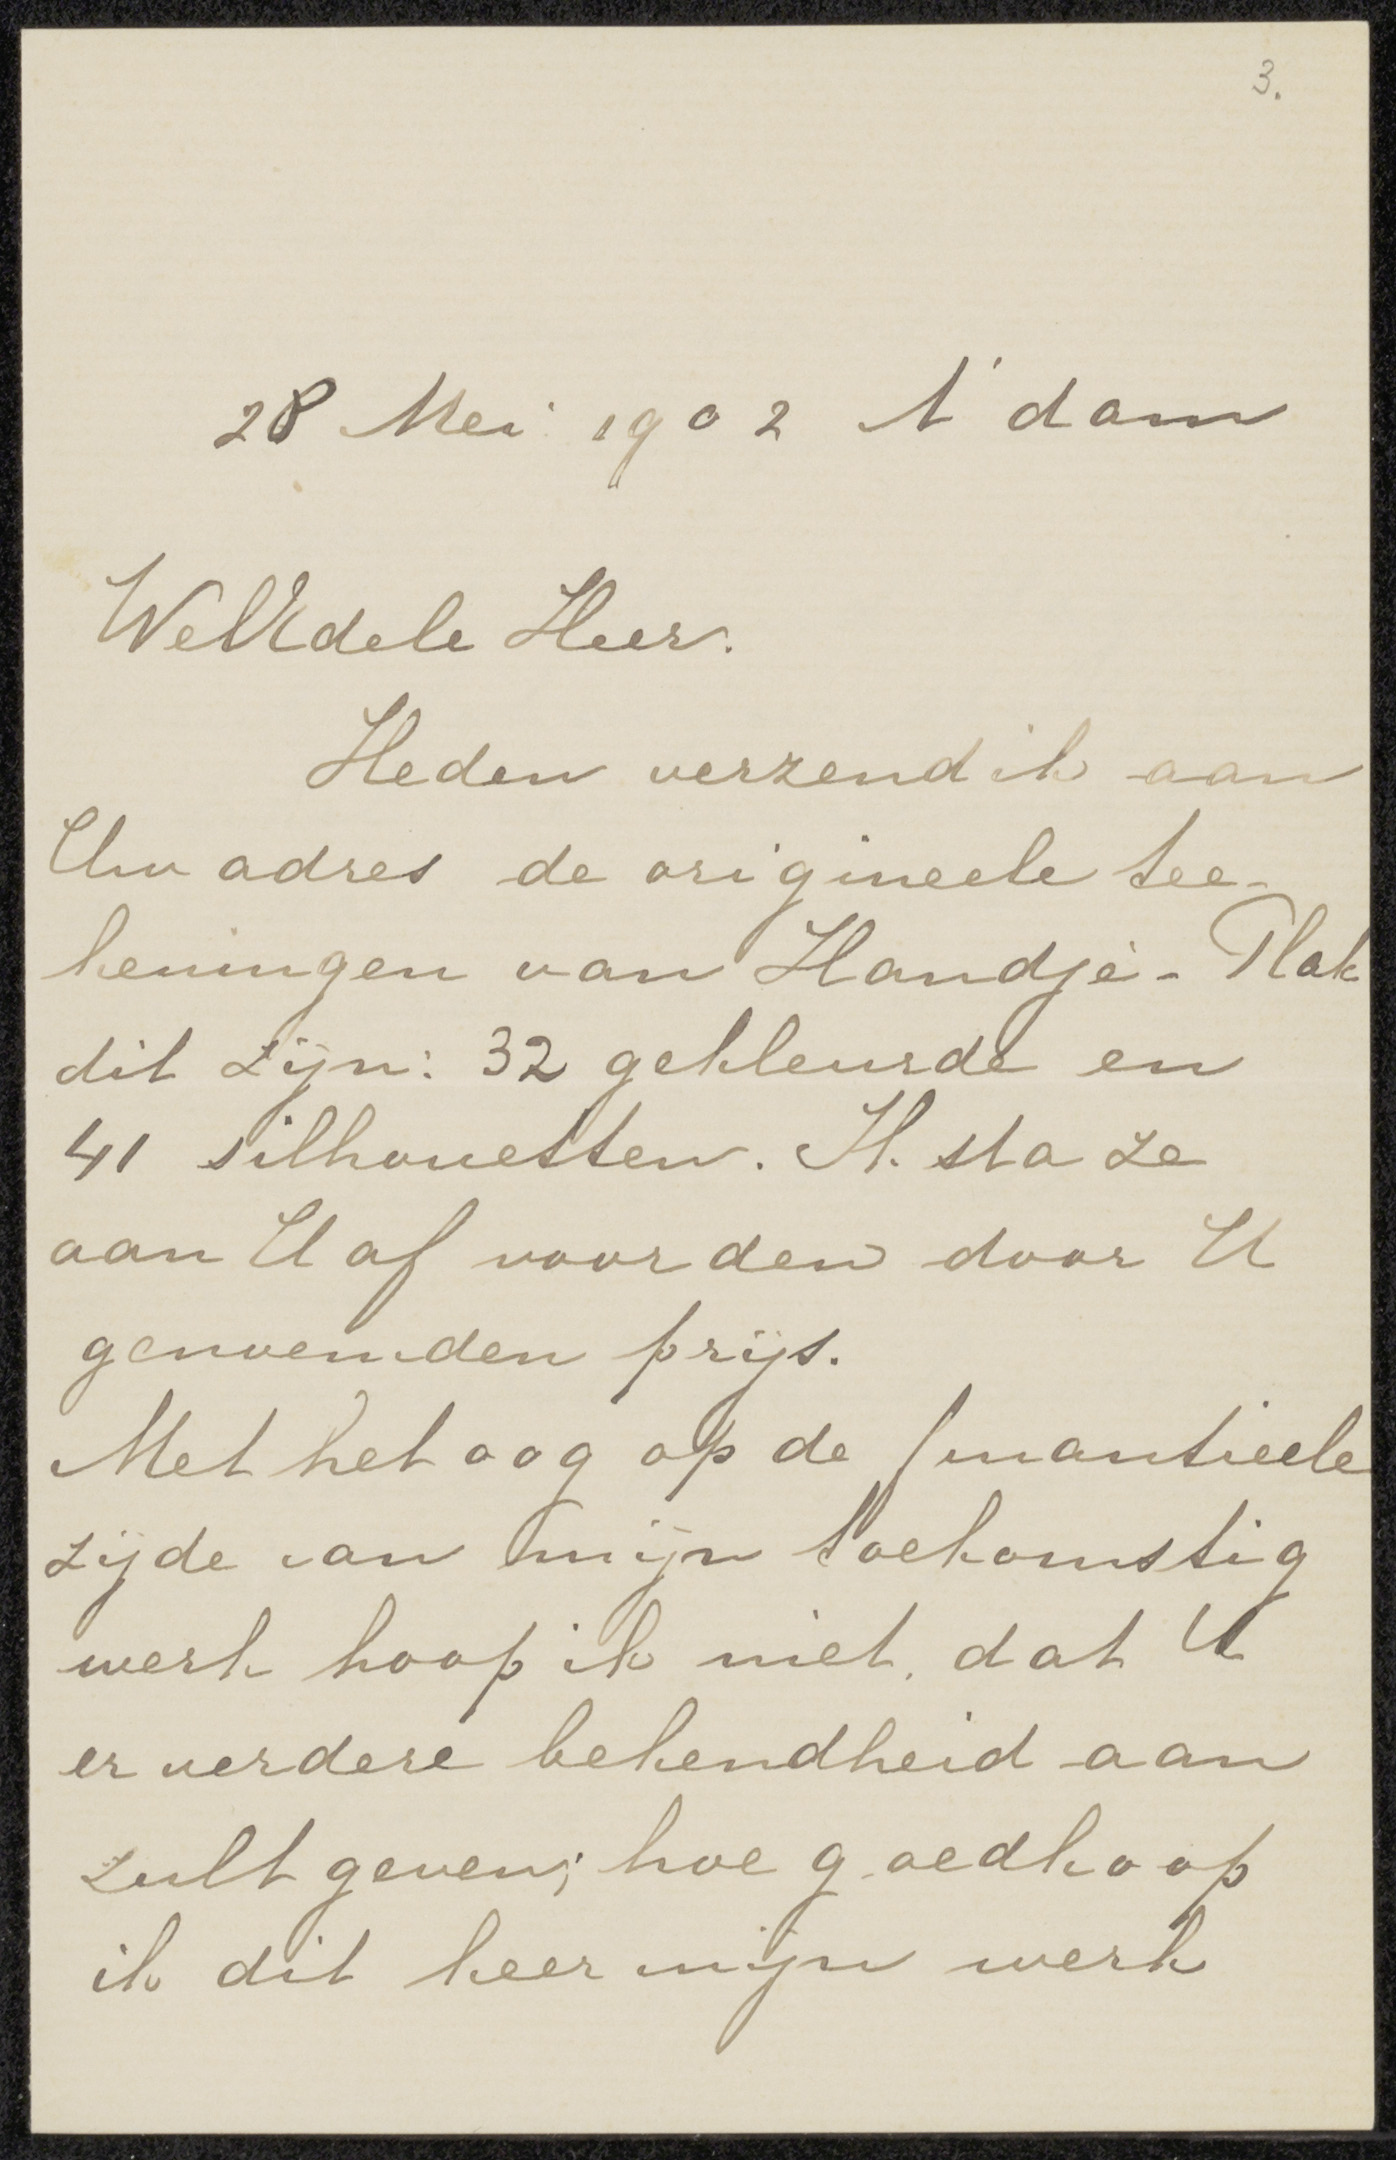 3.
28 Mei 1902 A'dam
WelEdele Heer.
Heden verzend ik aan
Uw adres de origineele tee-
keningen van Handje-Plak
dit zijn: 32 gekleurde en
41 silhouetten. Ik sta ze
aan U af voor den door U
genoemden prijs.
Met het oog op de finantieele
zijde van mijn toekomstig
werk hoop ik niet, dat U
er verdere bekendheid aan
zult geven; hoe goedkoop
ik dit keer mijn werk